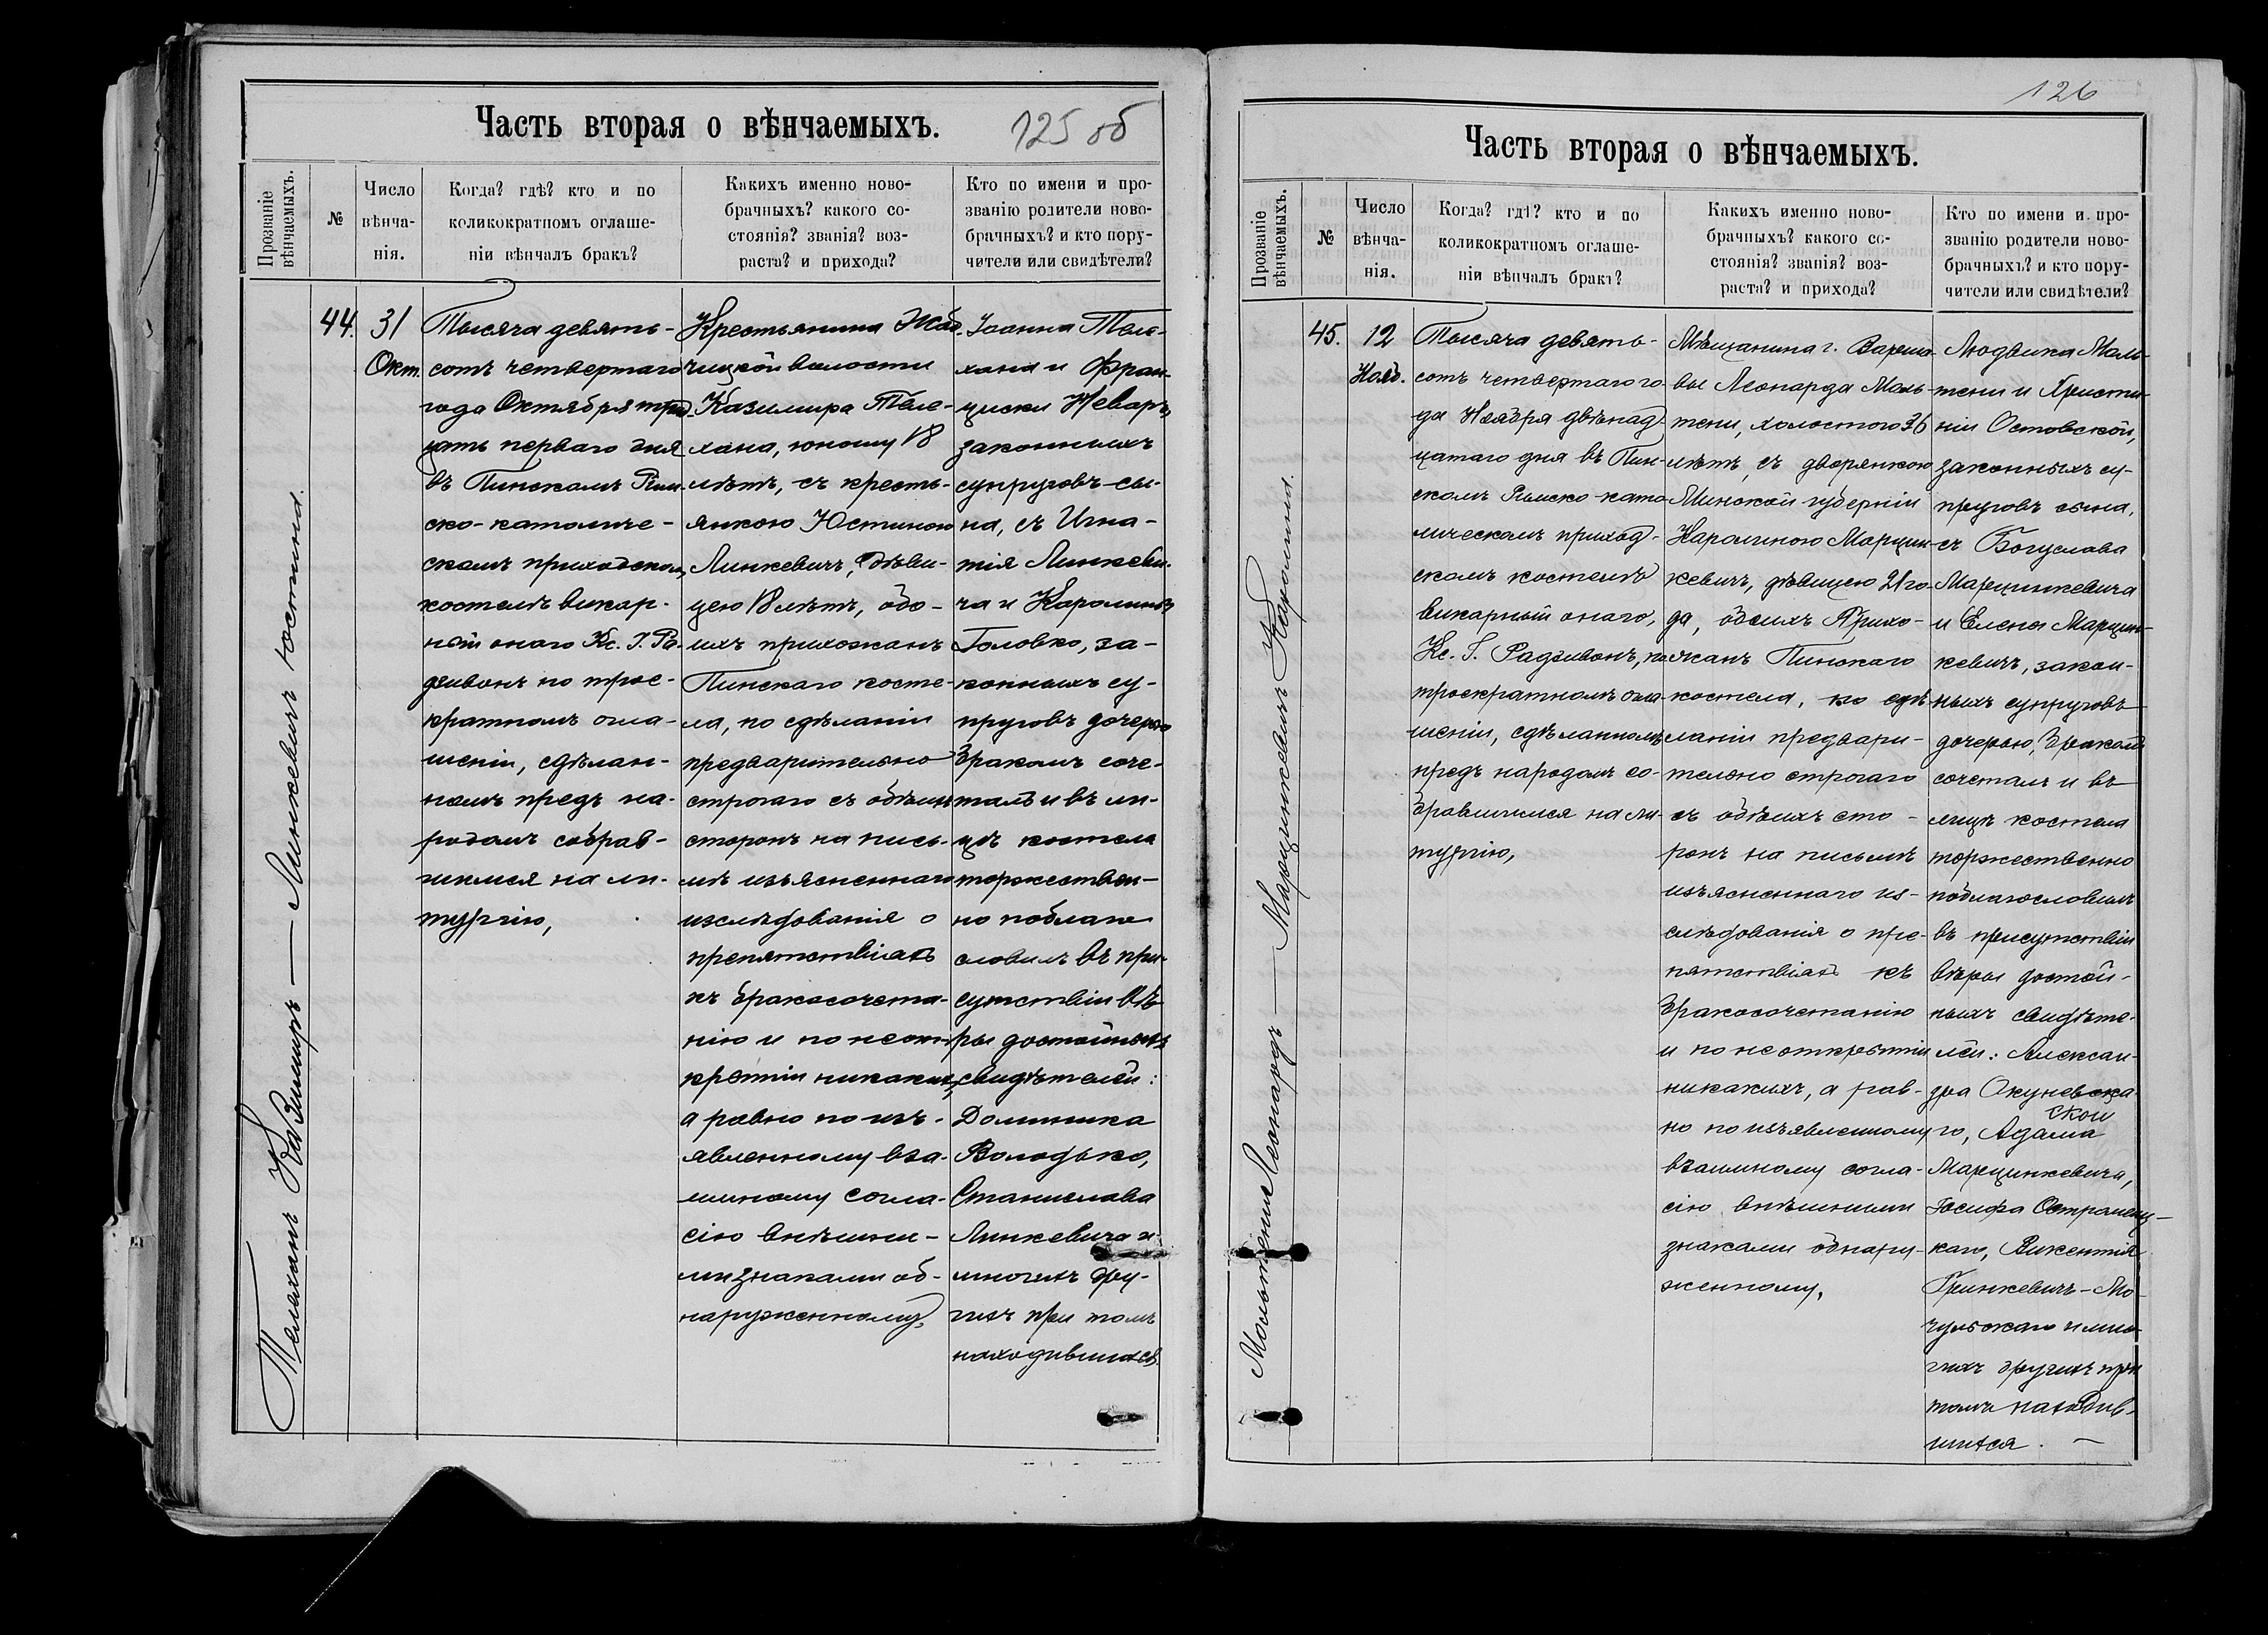 Часть вторая о вѣнчаемыхъ.
125 об
Прозваніе вѣнчаемыхъ.
№
Число
вѣнча-
нія.
Когда? гдѣ? кто и по
коликократномъ оглаше-
ніи вѣнчалъ бракъ?
Какихъ именно ново-
брачныхъ? какого со-
стоянія? званія? воз-
раста? и прихода?
Кто по имени и про-
званію родители ново-
брачныхъ? и кто пору-
чители или свидѣтели?
Телеханъ Казимиръ — Линкевичъ Юстина.
44.
31
Окт.
Тысяча девять-
сотъ четвертаго
года Октября трид-
цать перваго дня
въ Пинскомъ Рим-
ско-католиче-
скомъ приходскомъ
костелѣ викар-
ный онаго Кс. І. Ра-
дзивонъ по трое-
кратномъ огла-
шеніи, сдѣлан-
номъ предъ на-
родомъ собрав-
шимся на ли-
тургію,
Крестьянина Жаб-
чицкой волости
Казимира Теле-
хана, юношу 18
лѣтъ, съ кресть-
янкою Юстиною
Линкевичъ, дѣви-
цею 18 лѣтъ, обо-
ихъ прихожанъ
Пинскаго косте-
ла, по сдѣланіи
предварительно
строгаго съ обѣихъ
сторонъ на пись-
мѣ изъясненнаго
изслѣдованія о
препятствіяхъ
къ бракосочета-
нію и по неот-
крытіи никакихъ,
а равно по изъ-
явленному вза-
имному согла-
сію внѣшни-
ми знаками об-
наруженному,
Іоанна Теле-
хана и Фран-
циски Неваръ
законныхъ
супруговъ сы-
на, съ Игна-
тія Линкеви-
ча и Каролины
Головко, за-
конныхъ су-
пруговъ дочерью
бракомъ соче-
талъ и въ ли-
цѣ костела
торжествен-
но поблаго
словилъ въ при-
сутствіи вѣ-
ры достойныхъ
свидѣтелей:
Доминика
Володько,
Станислава
Линкевича и
многихъ дру-
гихъ при томъ
находившихся
126
Часть вторая о вѣнчаемыхъ.
Прозваніе вѣнчаемыхъ.
№
Число
вѣнча-
нія.
Когда? гдѣ? кто и по
коликократномъ оглаше-
ніи вѣнчалъ бракъ?
Какихъ именно ново-
брачныхъ? какого со-
стоянія? званія? воз-
раста? и прихода?
Кто по имени и про-
званію родители ново-
брачныхъ? и кто пору-
чители или свидѣтели?
Мальтени Леонардъ — Марцинкевичъ Каролина.
45.
12
Нояб.
Тысяча девять-
сотъ четвертаго го-
да Ноября двѣнад-
цатаго дня въ Пин-
скомъ Римско-като-
лическомъ приход-
скомъ костелѣ
викарный онаго,
Кс. І. Радзивонъ, по
троекратномъ огла-
шеніи, сдѣланномъ
предъ народомъ со-
бравшимся на ли-
тургію,
Мѣщанина г. Варша-
вы Леонарда Маль-
тени, холостого 36
лѣтъ, съ дворянкою
Минской губерніи
Каролиною Марцин-
кевичъ, дѣвицею 21 го-
да, обоихъ прихо-
жанъ Пинскаго
костела, по сдѣ
ланіи предвари-
тельно строгаго
съ обѣихъ сто-
ронъ на письмѣ
изъясненнаго из-
слѣдованія о пре-
пятствіяхъ къ
бракосочетанію
и по неоткрытіи
никакихъ, а рав-
но по изъявленному
взаимному согла-
сію внѣшними
знаками обнару-
женному,
Людвика Маль-
тени и Христи-
ніи Остовской,
законныхъ су-
пруговъ сына,
съ Богуслава
Марцинкевича
и Елены Марцин-
кевичъ, закон-
ныхъ супруговъ
дочерью, бракомъ
сочеталъ и въ
лицѣ костела
торжественно
поблагословилъ
въ присутствіи
вѣры достой-
ныхъ свидѣте-
лей: Алексан-
дра Окуневска
го, Адама
Марцинкевича,
Іосифа Остромец-
каго, Викентія
Гринкевичъ-Мо-
чульскаго и мно
гихъ другихъ при
томъ находив-
шихся. —